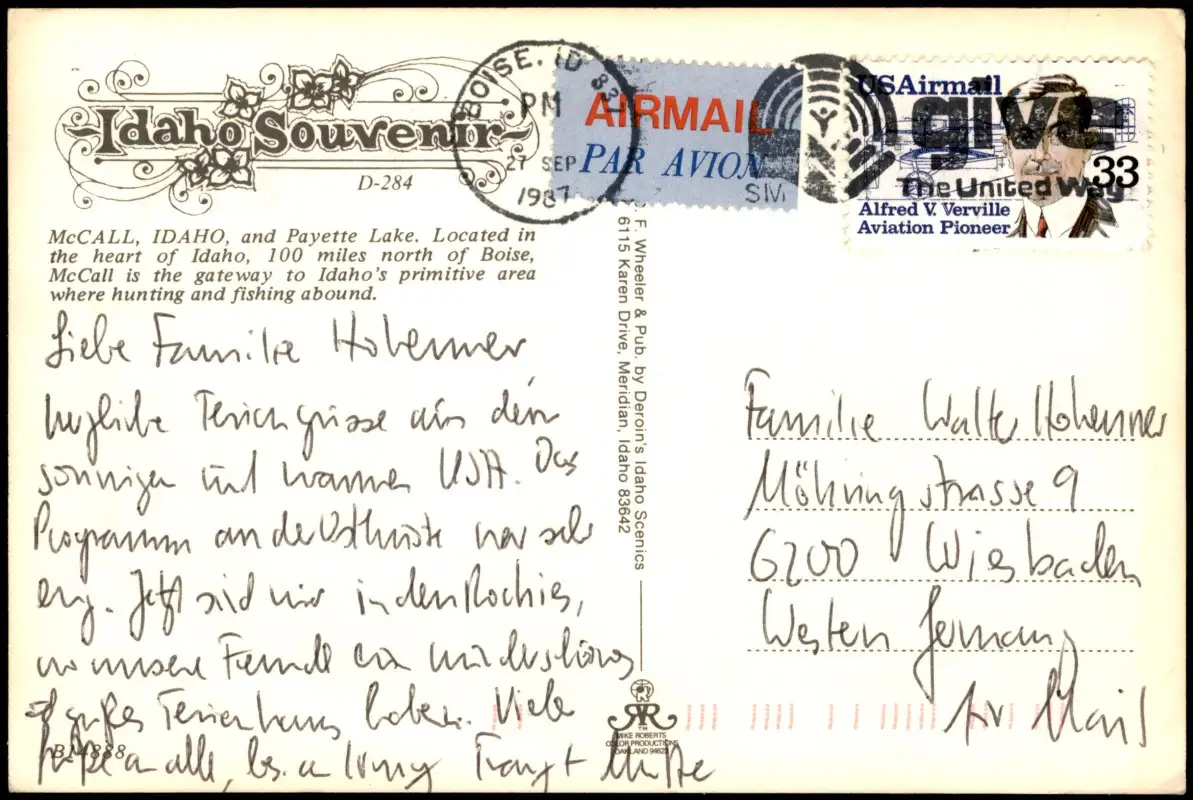 Idaho Souvenir
D-284
BOISE, ID 837
PM
27 SEP
1987
AIRMAIL
PAR AVION
USAirmail
give
33
The United Way
Alfred V. Verville
Aviation Pioneer
McCALL, IDAHO, and Payette Lake. Located in
the heart of Idaho, 100 miles north of Boise,
McCall is the gateway to Idaho's primitive area
where hunting and fishing abound.
Liebe Familie Hohenner
herzliche Feriengrüsse aus dem
sonnigen und warmen USA. Das
Programm an der Ostküste war sehr
eng. Jetzt sind wir in den Rockies,
wo unsere Freunde ein wunderschönes
großes Ferienhaus haben. Viele
Grüße an alle, bes. an
F. Wheeler & Pub. by Deroin's Idaho Scenics
6115 Karen Drive, Meridian, Idaho 83642
Familie Walter Hohenner
Möhringstrasse 9
6200 Wiesbaden
Western Germany
Air Mail
MIKE ROBERTS
COLOR PRODUCTIONS
OAKLAND 94623